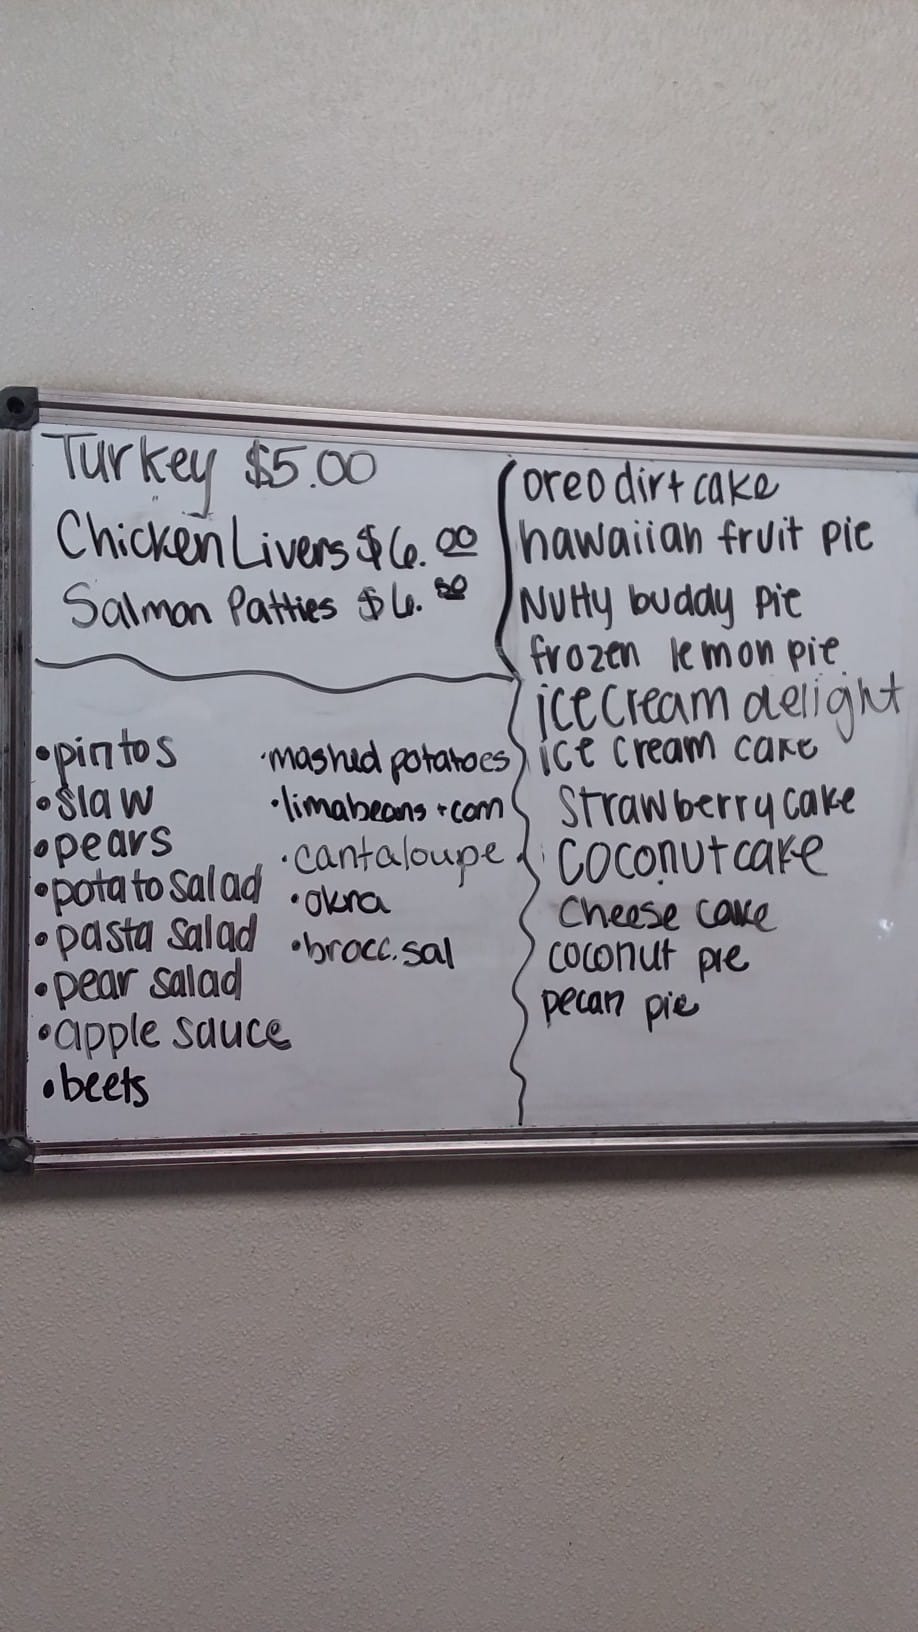 Turkey $5.00
Chicken Livers $6.00
Salmon Patties $6.50
•pintos
•slaw
•pears
•potato salad
•pasta salad
•pear salad
•apple sauce
•beets
•mashed potatoes
•limabeans + corn
•cantaloupe
•okra
•brocc. sal
oreo dirt cake
hawaiian fruit pie
Nutty buddy pie
frozen lemon pie
ice cream delight
ice cream cake
Strawberry cake
coconut cake
Cheese cake
coconut pie
pecan pie